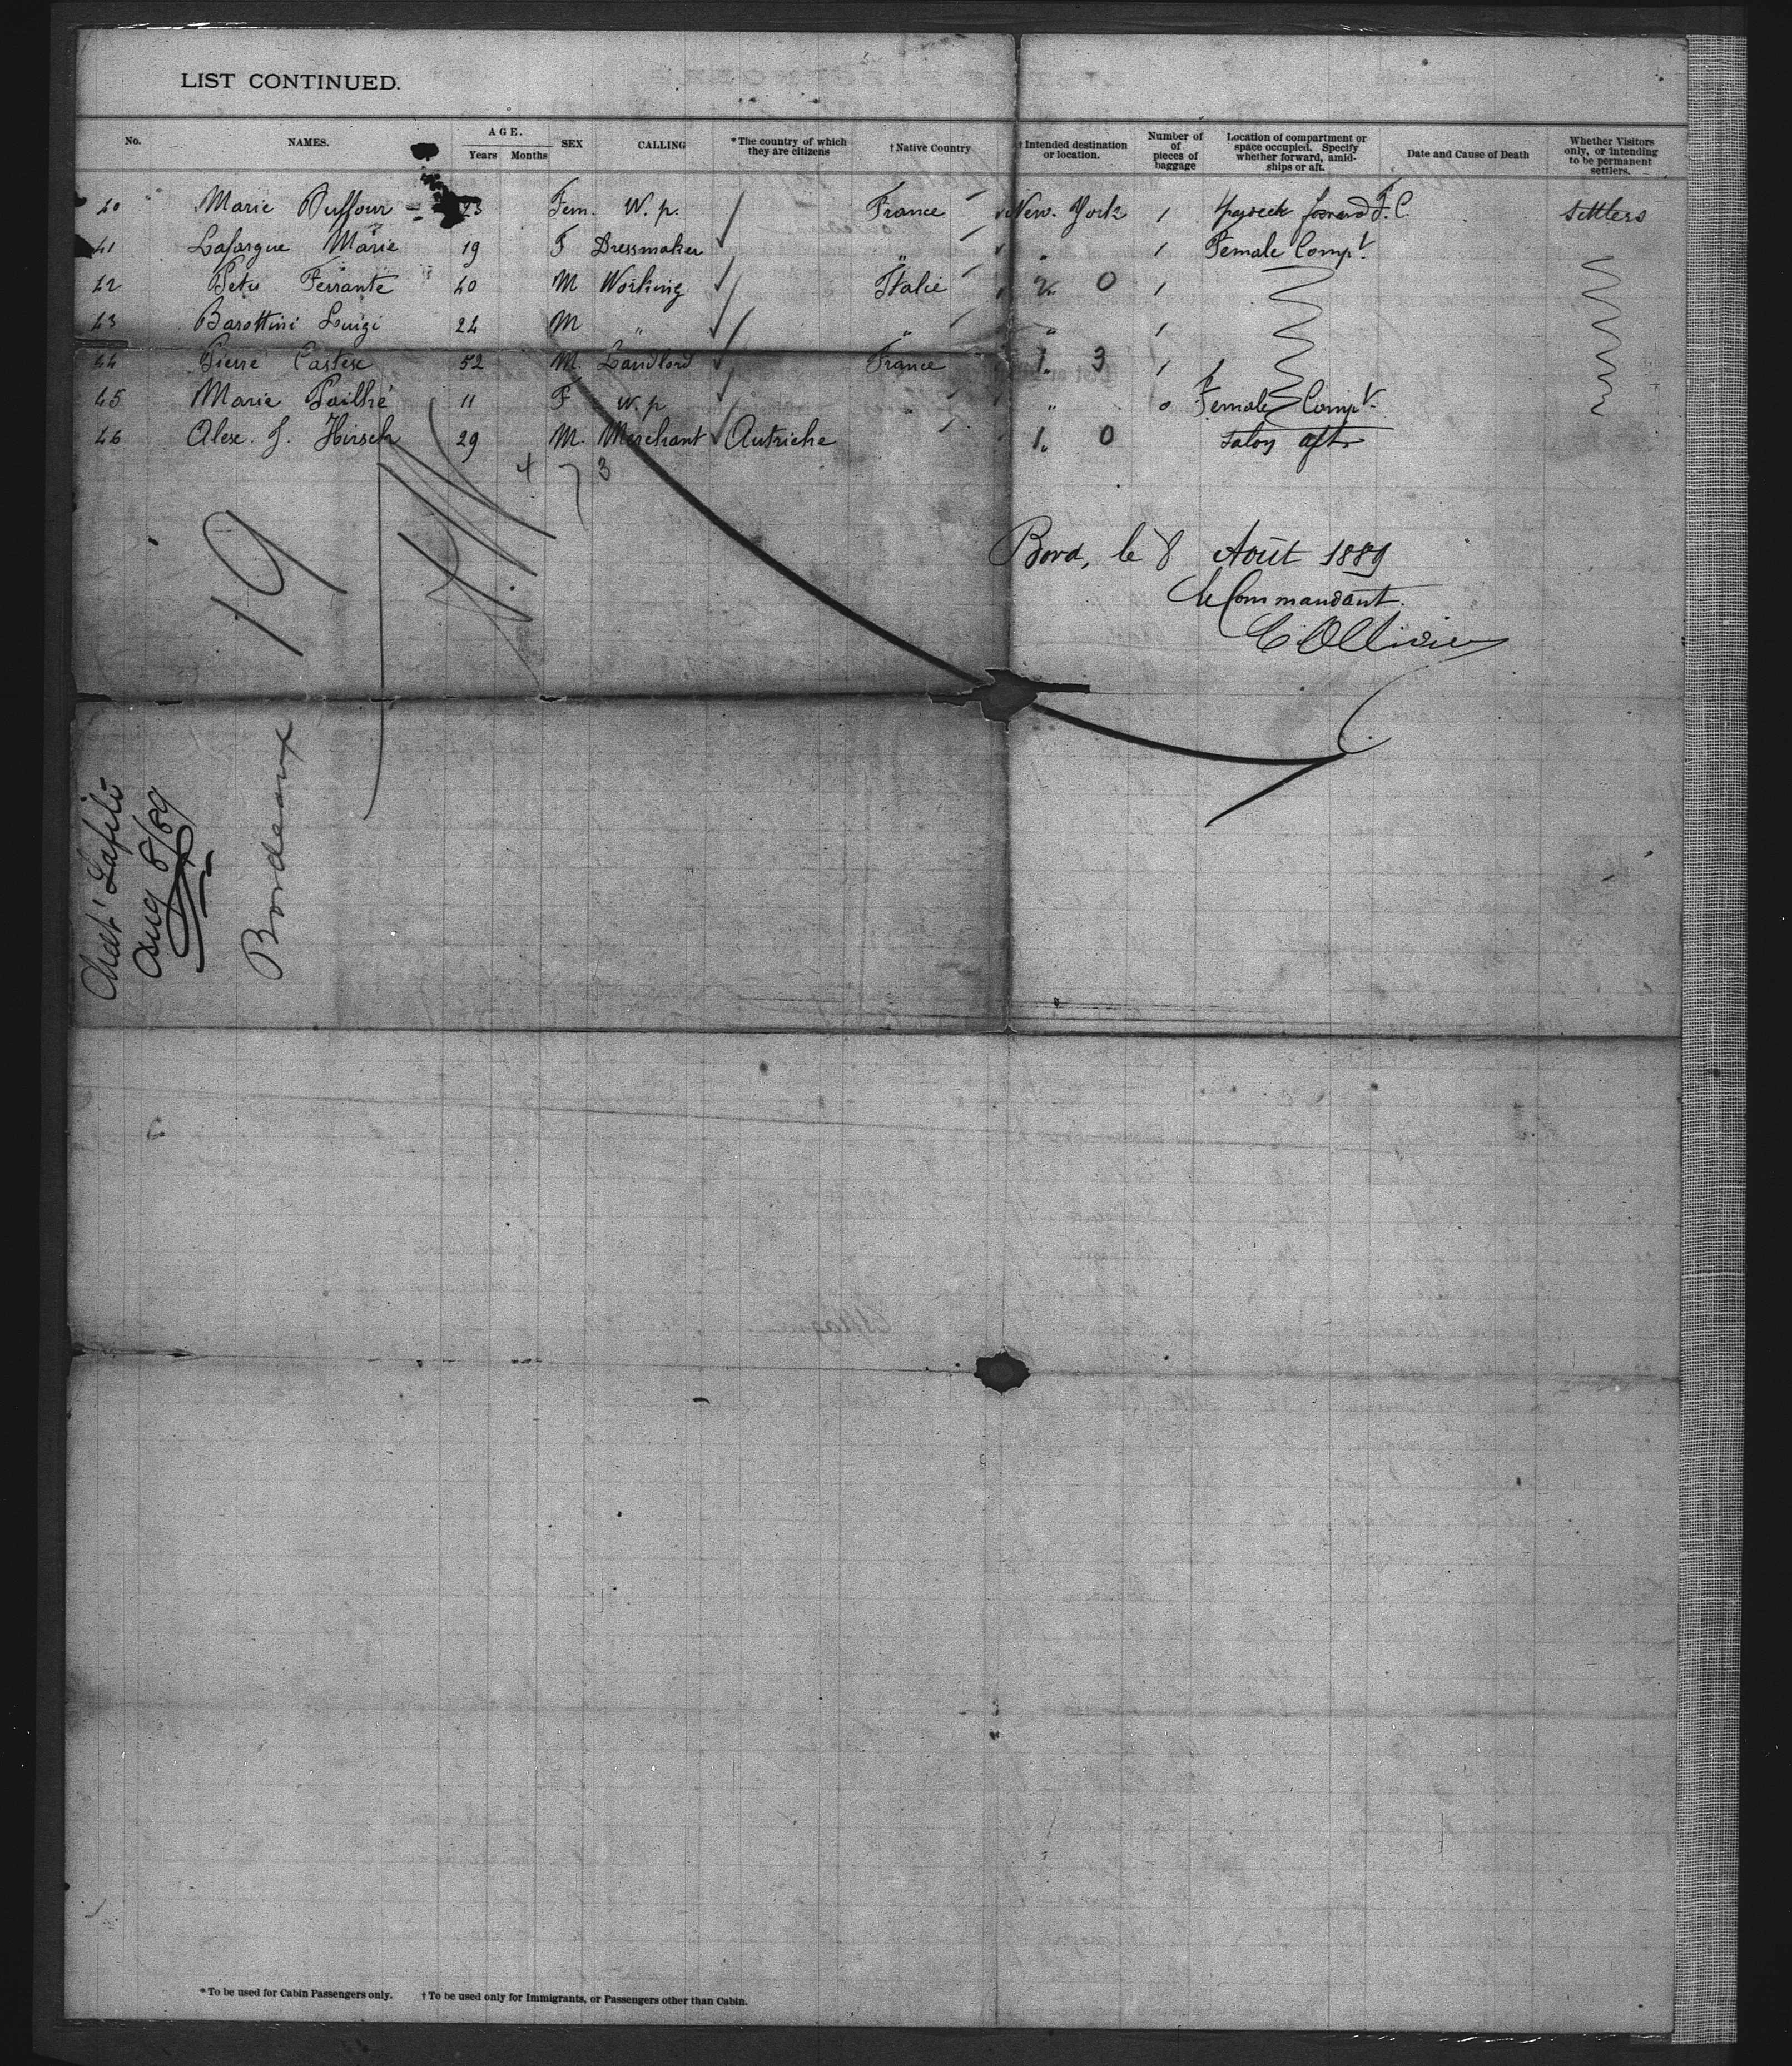 LIST CONTINUED.
No. NAMES. AGE. Years Months SEX CALLING *The country of which they are citizens †Native Country †Intended destination or location. Number of pieces of baggage Location of compartment or space occupied. Specify whether forward, amidships or aft. Date and Cause of Death Whether Visitors only, or intending to be permanent settlers.
40 Marie Duffour 23 Fem. W. p. France New. York 1 forward F. C. Settlers
41 Lafargue Marie 19 F Dressmaker " " 1 Female Compt.
42 Ferrante 40 M Working Italie 2 0 1
43 Barottini Luigi 24 M " " " 1
44 Pierre Castex 52 M. Landlord France 1 " 3 1
45 Marie Pailhé 11 F W. p " " 0 Female Compt.
46 Alex. J. Hirsch 29 M. Merchant Autriche 1 " 0 Salon aft
4 3
19
Bord, le 8 Août 1889
Le Commandant.
C Ollivier
Chat' Lafite
Aug 8/89
Bordeaux
*To be used for Cabin Passengers only. †To be used only for Immigrants, or Passengers other than Cabin.